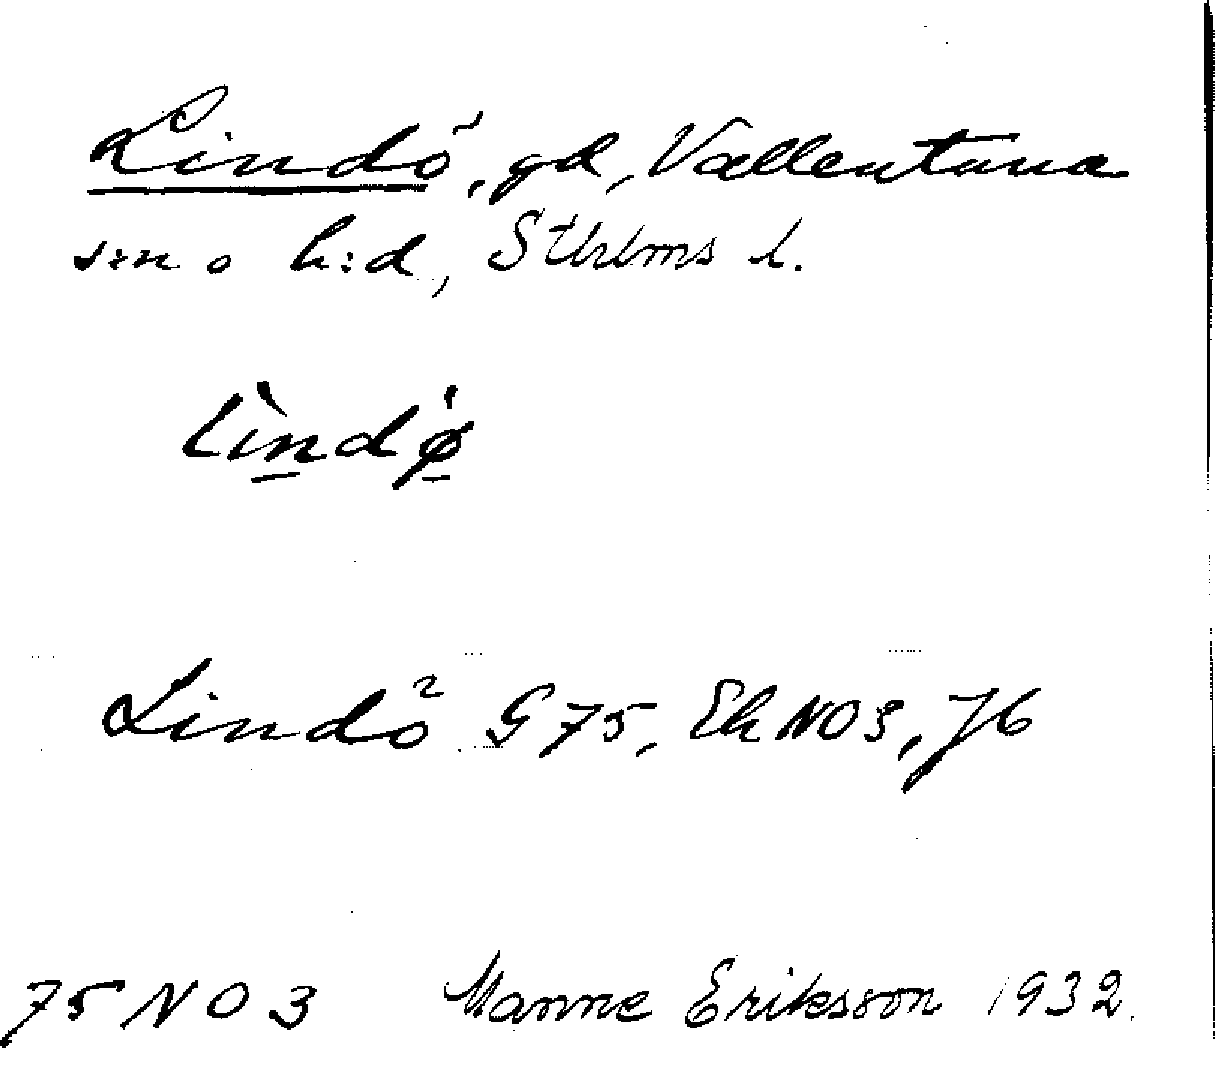 Lindö, gd, Vallentuna
s:n o h:d, Sthlms l.
lìndø̍
Lindö² G 75, Ek NO3, J6
75 NO 3 Manne Eriksson 1932.